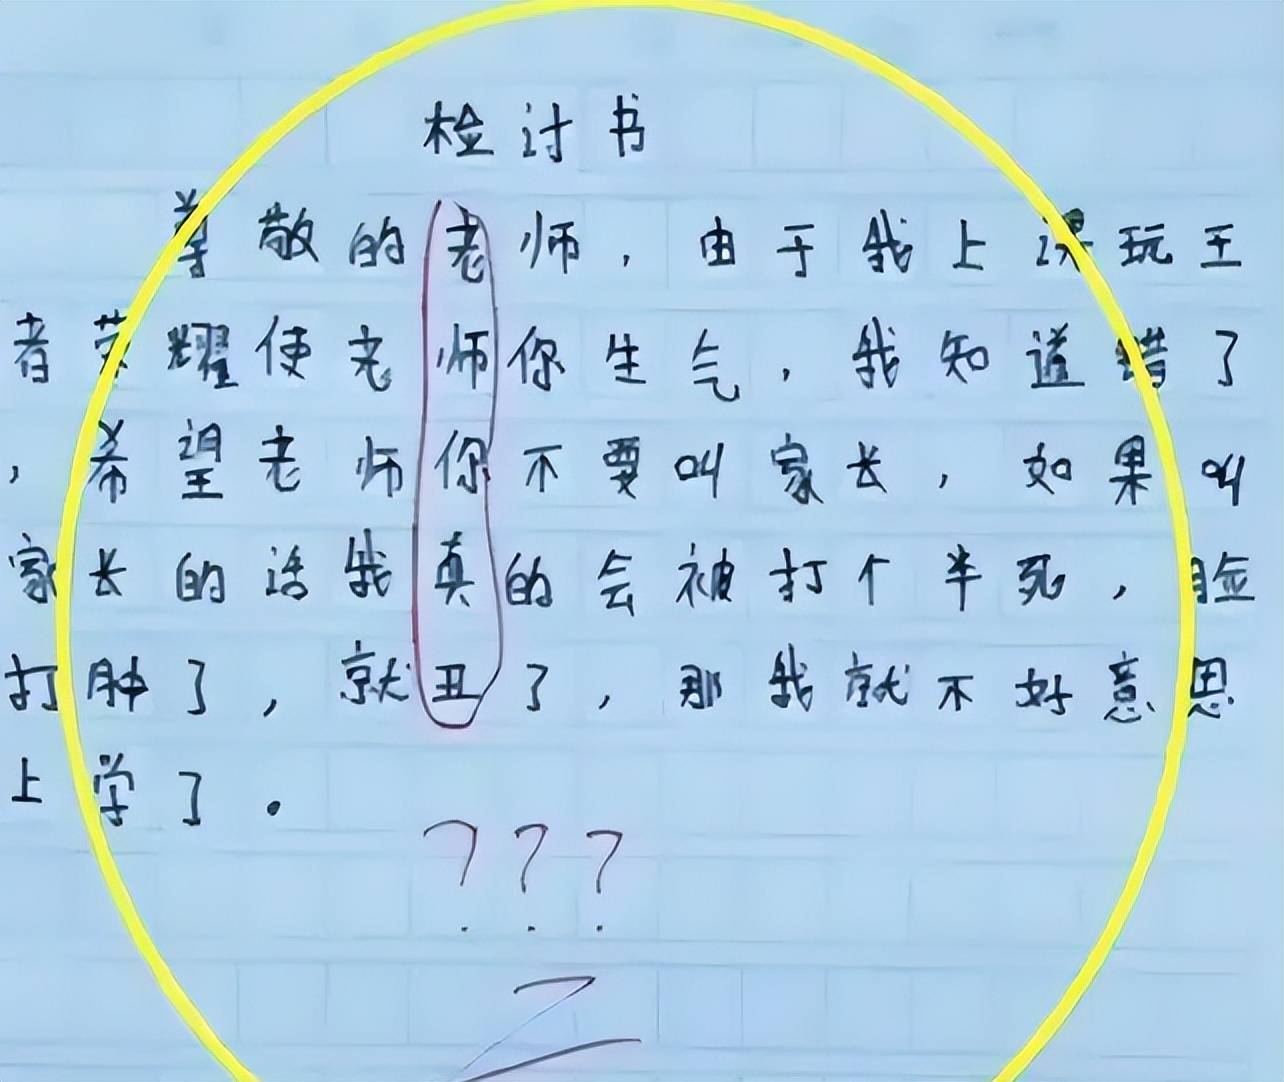 检讨书
尊敬的老师,由于我上课玩王
者荣耀使老师你生气,我知道错了
,希望老师你不要叫家长,如果叫
家长的话我真的会被打个半死,脸
打肿了,就丑了,那我就不好意思
上学了。
???